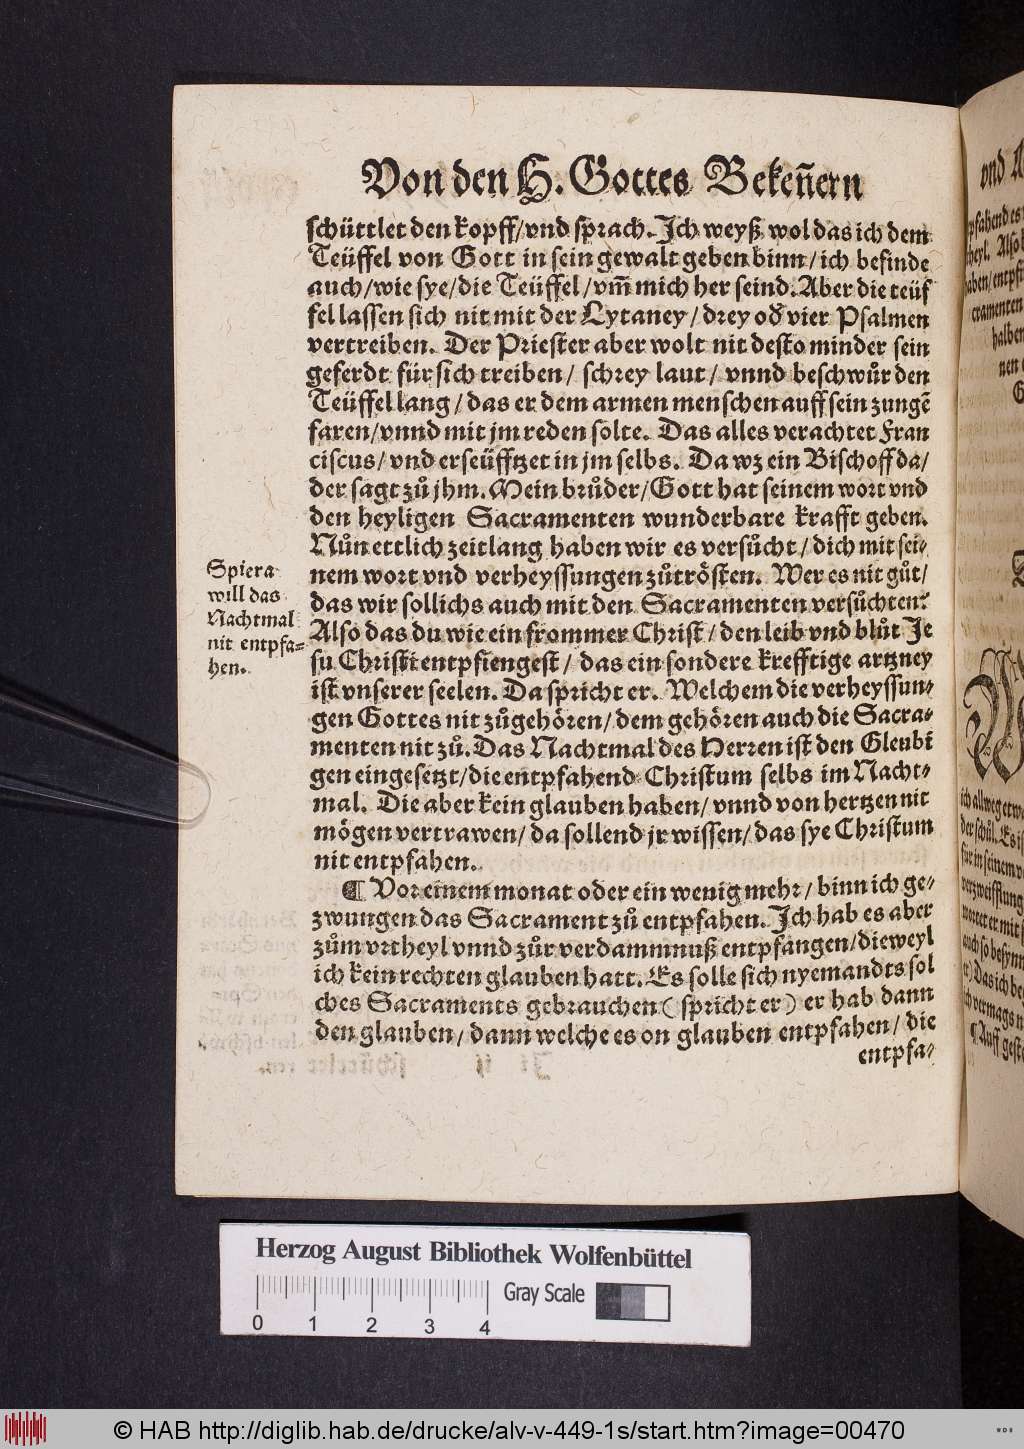 Von den H. Gottes Bekeñern
schüttlet den kopff/vnd sprach. Ich weyß wol das ich dem
Teüffel von Gott in sein gewalt geben binn/ich befinde
auch/wie sye/die Teüffel/vm̃ mich her seind. Aber die teüf
fel lassen sich nit mit der Lytaney/drey od̕ vier Psalmen
vertreiben. Der Priester aber wolt nit desto minder sein
geferdt für sich treiben/ schrey laut/ vnnd beschwůr den
Teüffel lang/das er dem armen menschen auff sein zungẽ
faren/vnnd mit jm reden solte. Das alles verachtet Fran
ciscus/vnd erseüfftzet in jm selbs. Da wz ein Bischoff da/
der sagt zů jhm. Mein brůder/Gott hat seinem wort vnd
den heyligen Sacramenten wunderbare krafft geben.
Nůn ettlich zeitlang haben wir es versůcht/dich mit sei-
nem wort vnd verheyssungen zůtrösten. Wer es nit gůt/
das wir sollichs auch mit den Sacramenten versůchten?
Also das du wie ein frommer Christ/den leib vnd blůt Je
su Christi entpfiengest/das ein sondere krefftige artzney
ist vnserer seelen. Da spricht er. Welchem die verheyssun-
gen Gottes nit zůgehören/dem gehören auch die Sacra-
menten nit zů. Das Nachtmal des Herren ist den Gleubĩ
gen eingesetzt/die entpfahend Christum selbs im Nacht-
mal. Die aber kein glauben haben/vnnd von hertzen nit
mögen vertrawen/da sollend jr wissen/das sye Christum
nit entpfahen.
¶ Vor einem monat oder ein wenig mehr/binn ich ge-
zwungen das Sacrament zů entpfahen. Ich hab es aber
zům vrtheyl vnnd zůr verdammnuß entpfangen/dieweyl
ich kein rechten glauben hatt. Es solle sich nyemandts sol
ches Sacraments gebrauchen (spricht er) er hab dann
den glauben/dann welche es on glauben entpfahen/die
entpfa-
Spiera
will das
Nachtmal
nit entpfa-
hen.
vnd
Herzog August Bibliothek Wolfenbüttel
Gray Scale
0 1 2 3 4
© HAB http://diglib.hab.de/drucke/alv-v-449-1s/start.htm?image=00470